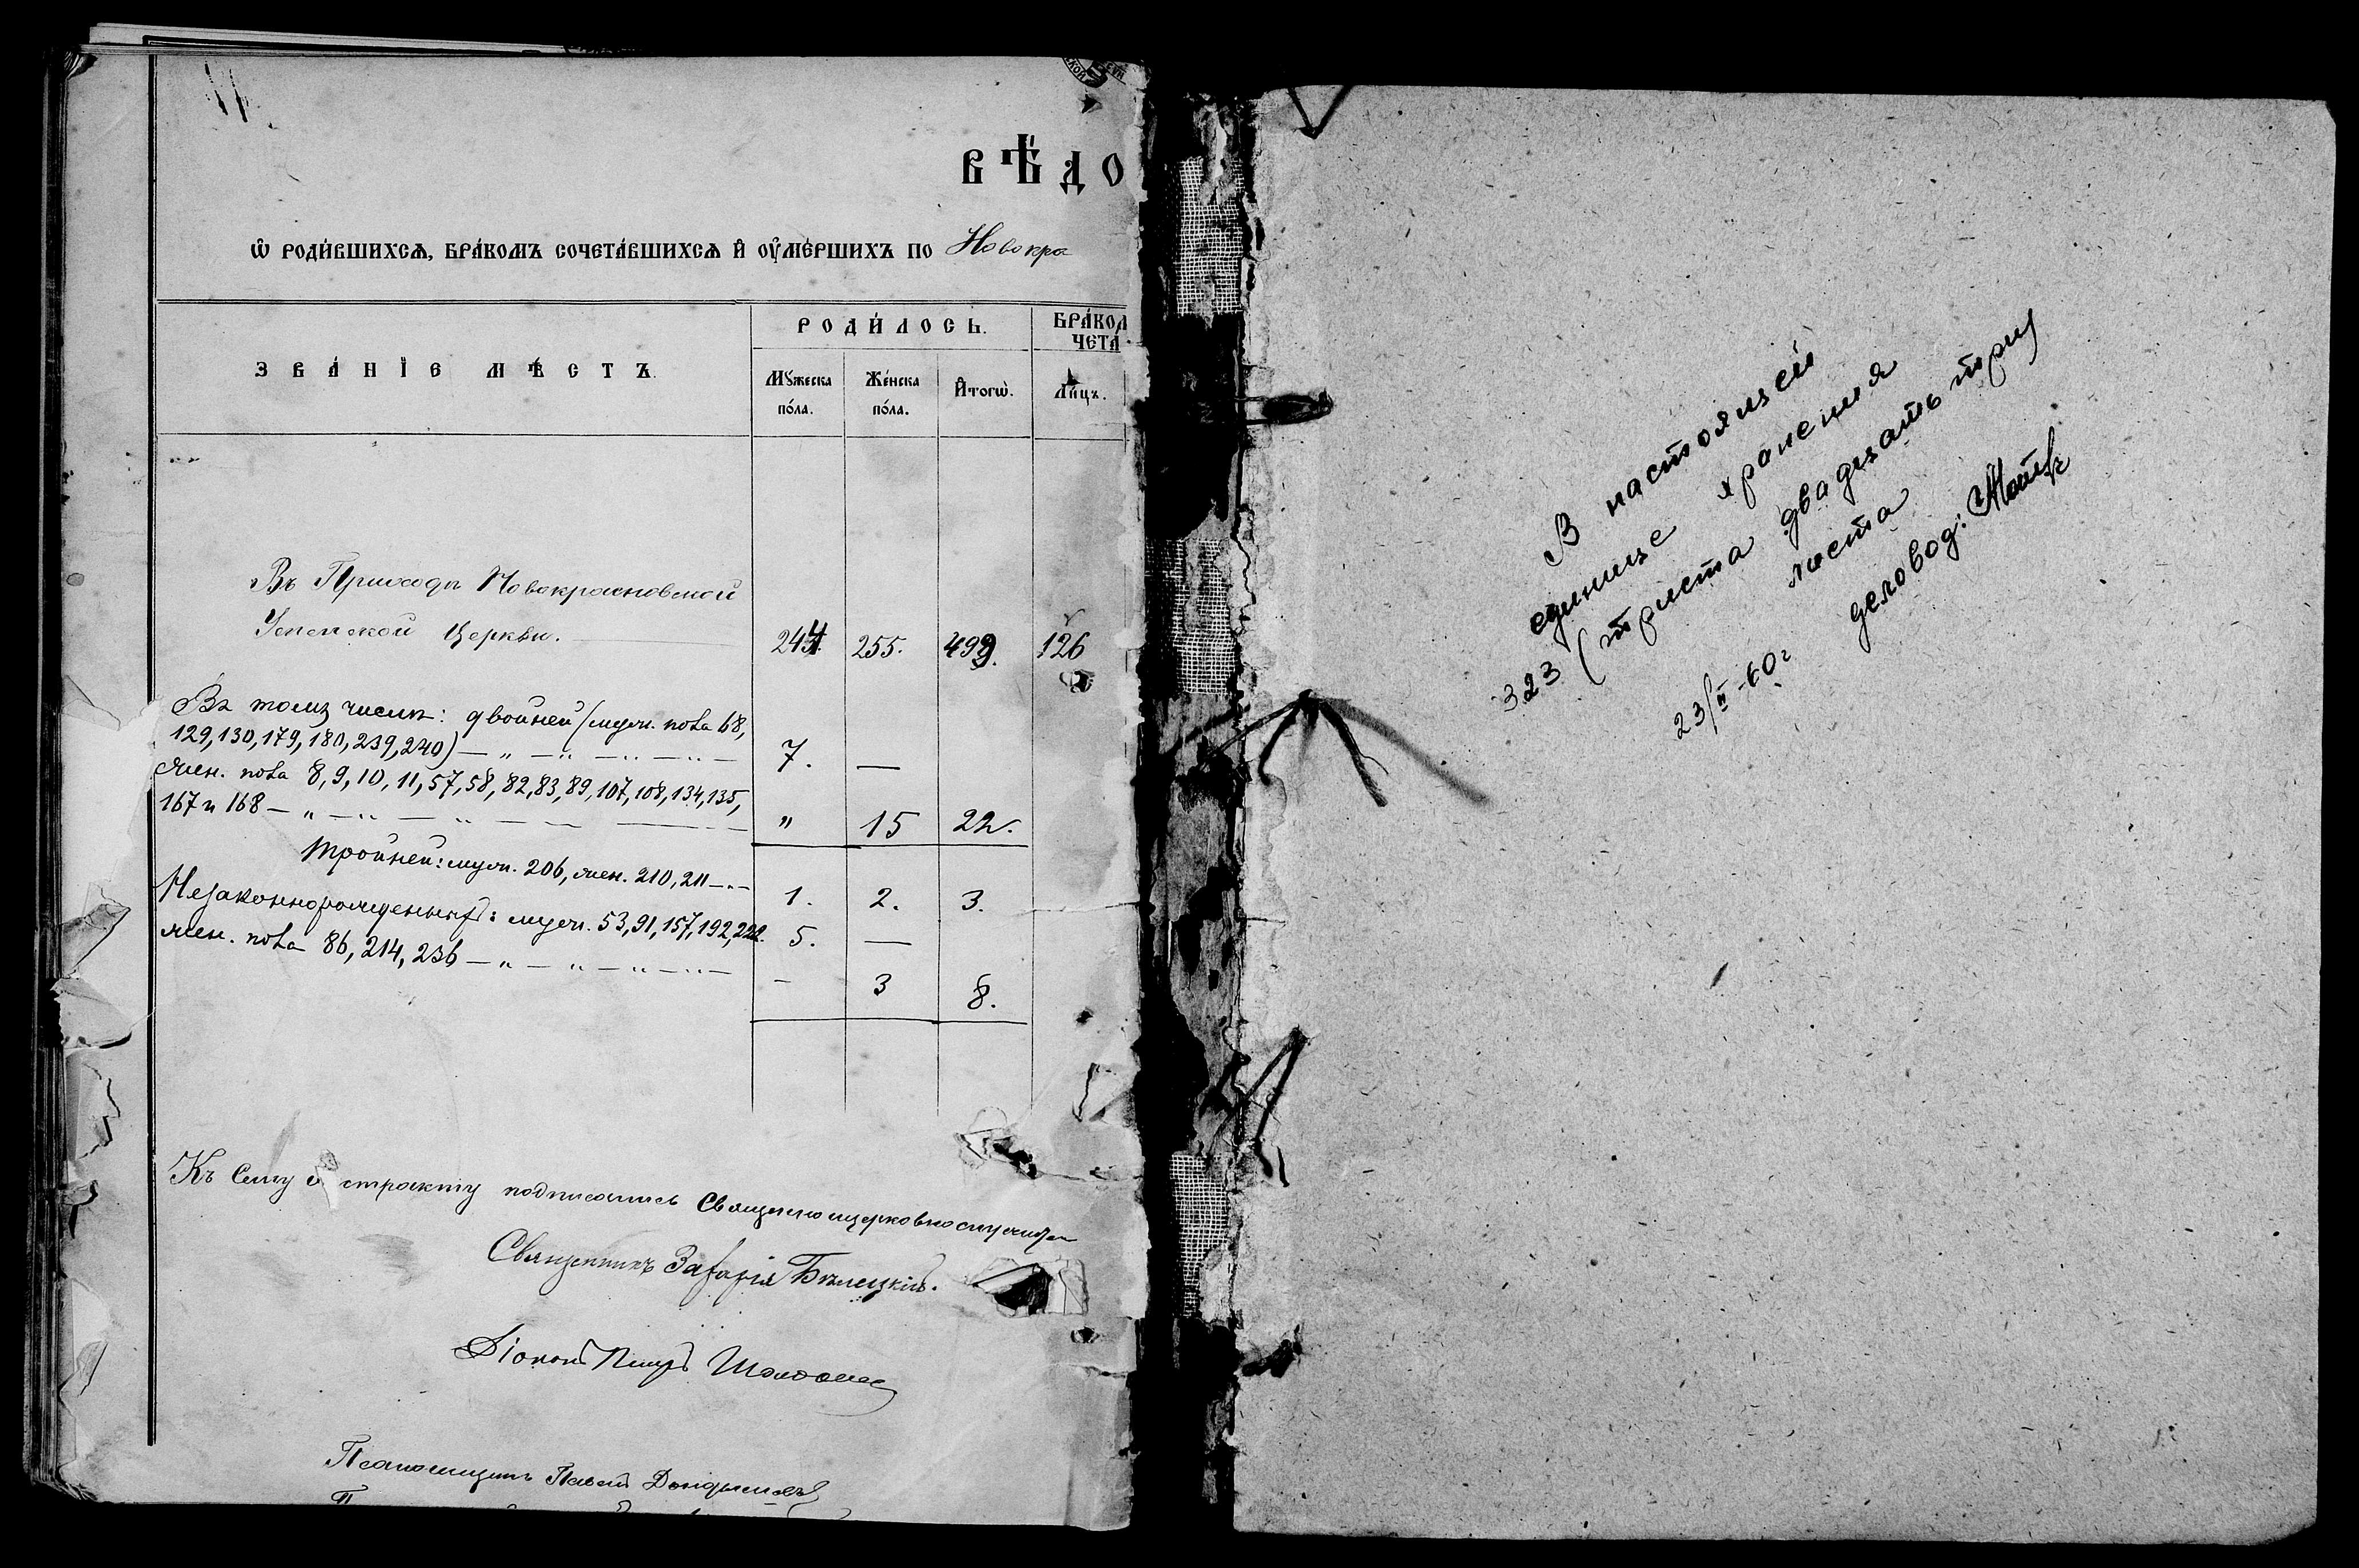 ВѢДО
Ѡ РОДИ́ВШИХСѦ, БРА́КОМЪ СОЧЕТА́ВШИХСѦ И҆ ОУ҆МЕ́РШИХЪ ПО Новокра
ЗВА́НІЕ МѢ́СТЪ.
РОДИ́ЛОСЬ.
БРА́КОМ
ЧЕТА
Мꙋ́жеска
по́ла.
Же́нска
по́ла.
И҆тогѡ̀.
Ли́цъ.
Въ Приходѣ Новокрасновской
Успенской Церкви.
244. 255. 499. 126
Въ томъ числѣ: двойней (муж. пола 68,
129, 130, 179, 180, 239, 240) — „ — „ — „ — „ — 7. —
жен. пола 8, 9, 10, 11, 57, 58, 82, 83, 89, 107, 108, 134, 135,
167 и 168 — „ — „ — „ — „ 15 22.
Тройней: муж. 206, жен. 210, 211 — „ — 1. 2. 3.
Незаконнорожденныхъ: муж. 53, 91, 157, 192, 222. 5. —
жен. пола 86, 214, 236 — „ — „ — „ — „ — - 3 8.
Къ сему экстракту подписались Священноцерковнослужители
Священникъ Захарія Бѣлецкій.
Діаконъ Петръ
Псаломщикъ Павелъ
В настоящей
единице хранения
323 (триста двадцать три)
листа
23/II-60г деловод: